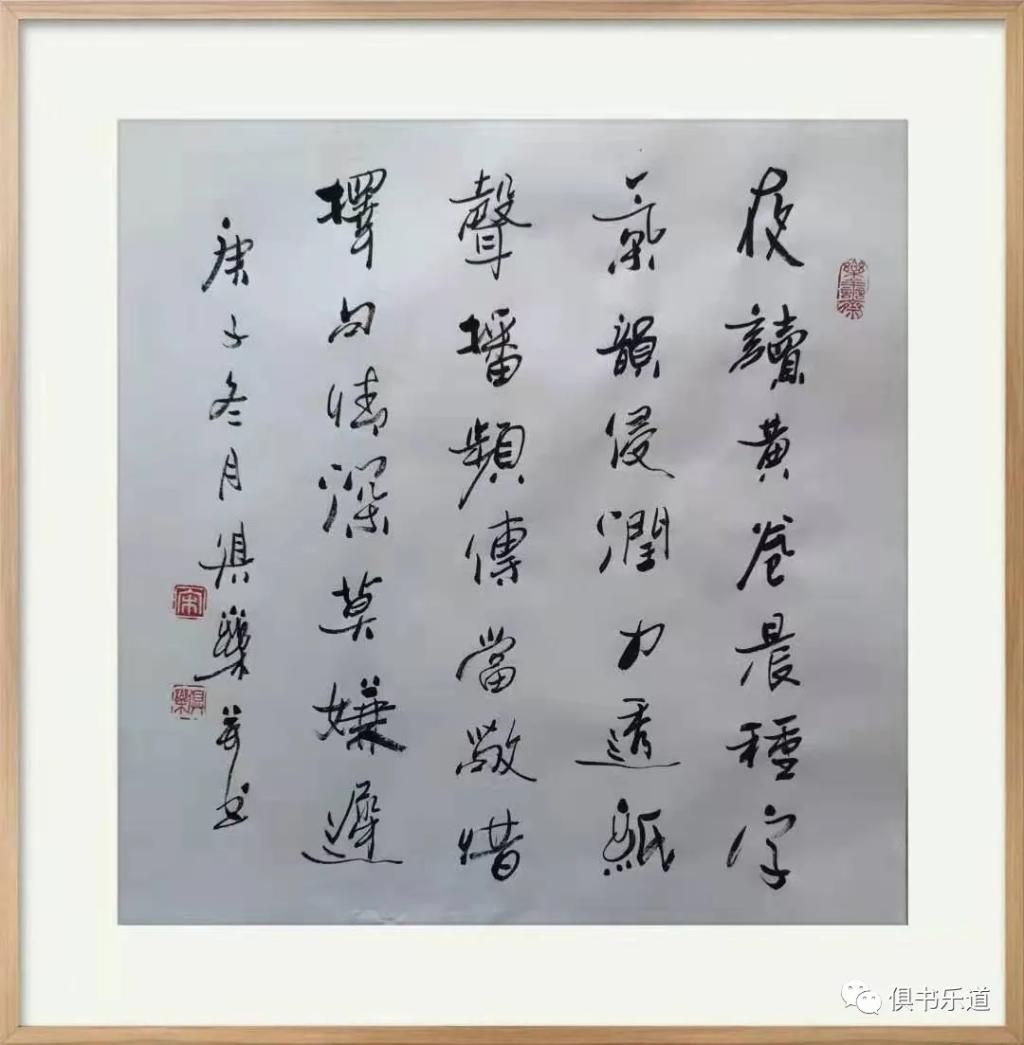 夜讀黃卷晨種字
氣韻侵潤力透紙
聲播頻傳當敬惜
擇句情深莫嫌遲
庚子冬月俱樂並书
宋
俱樂
俱书乐道